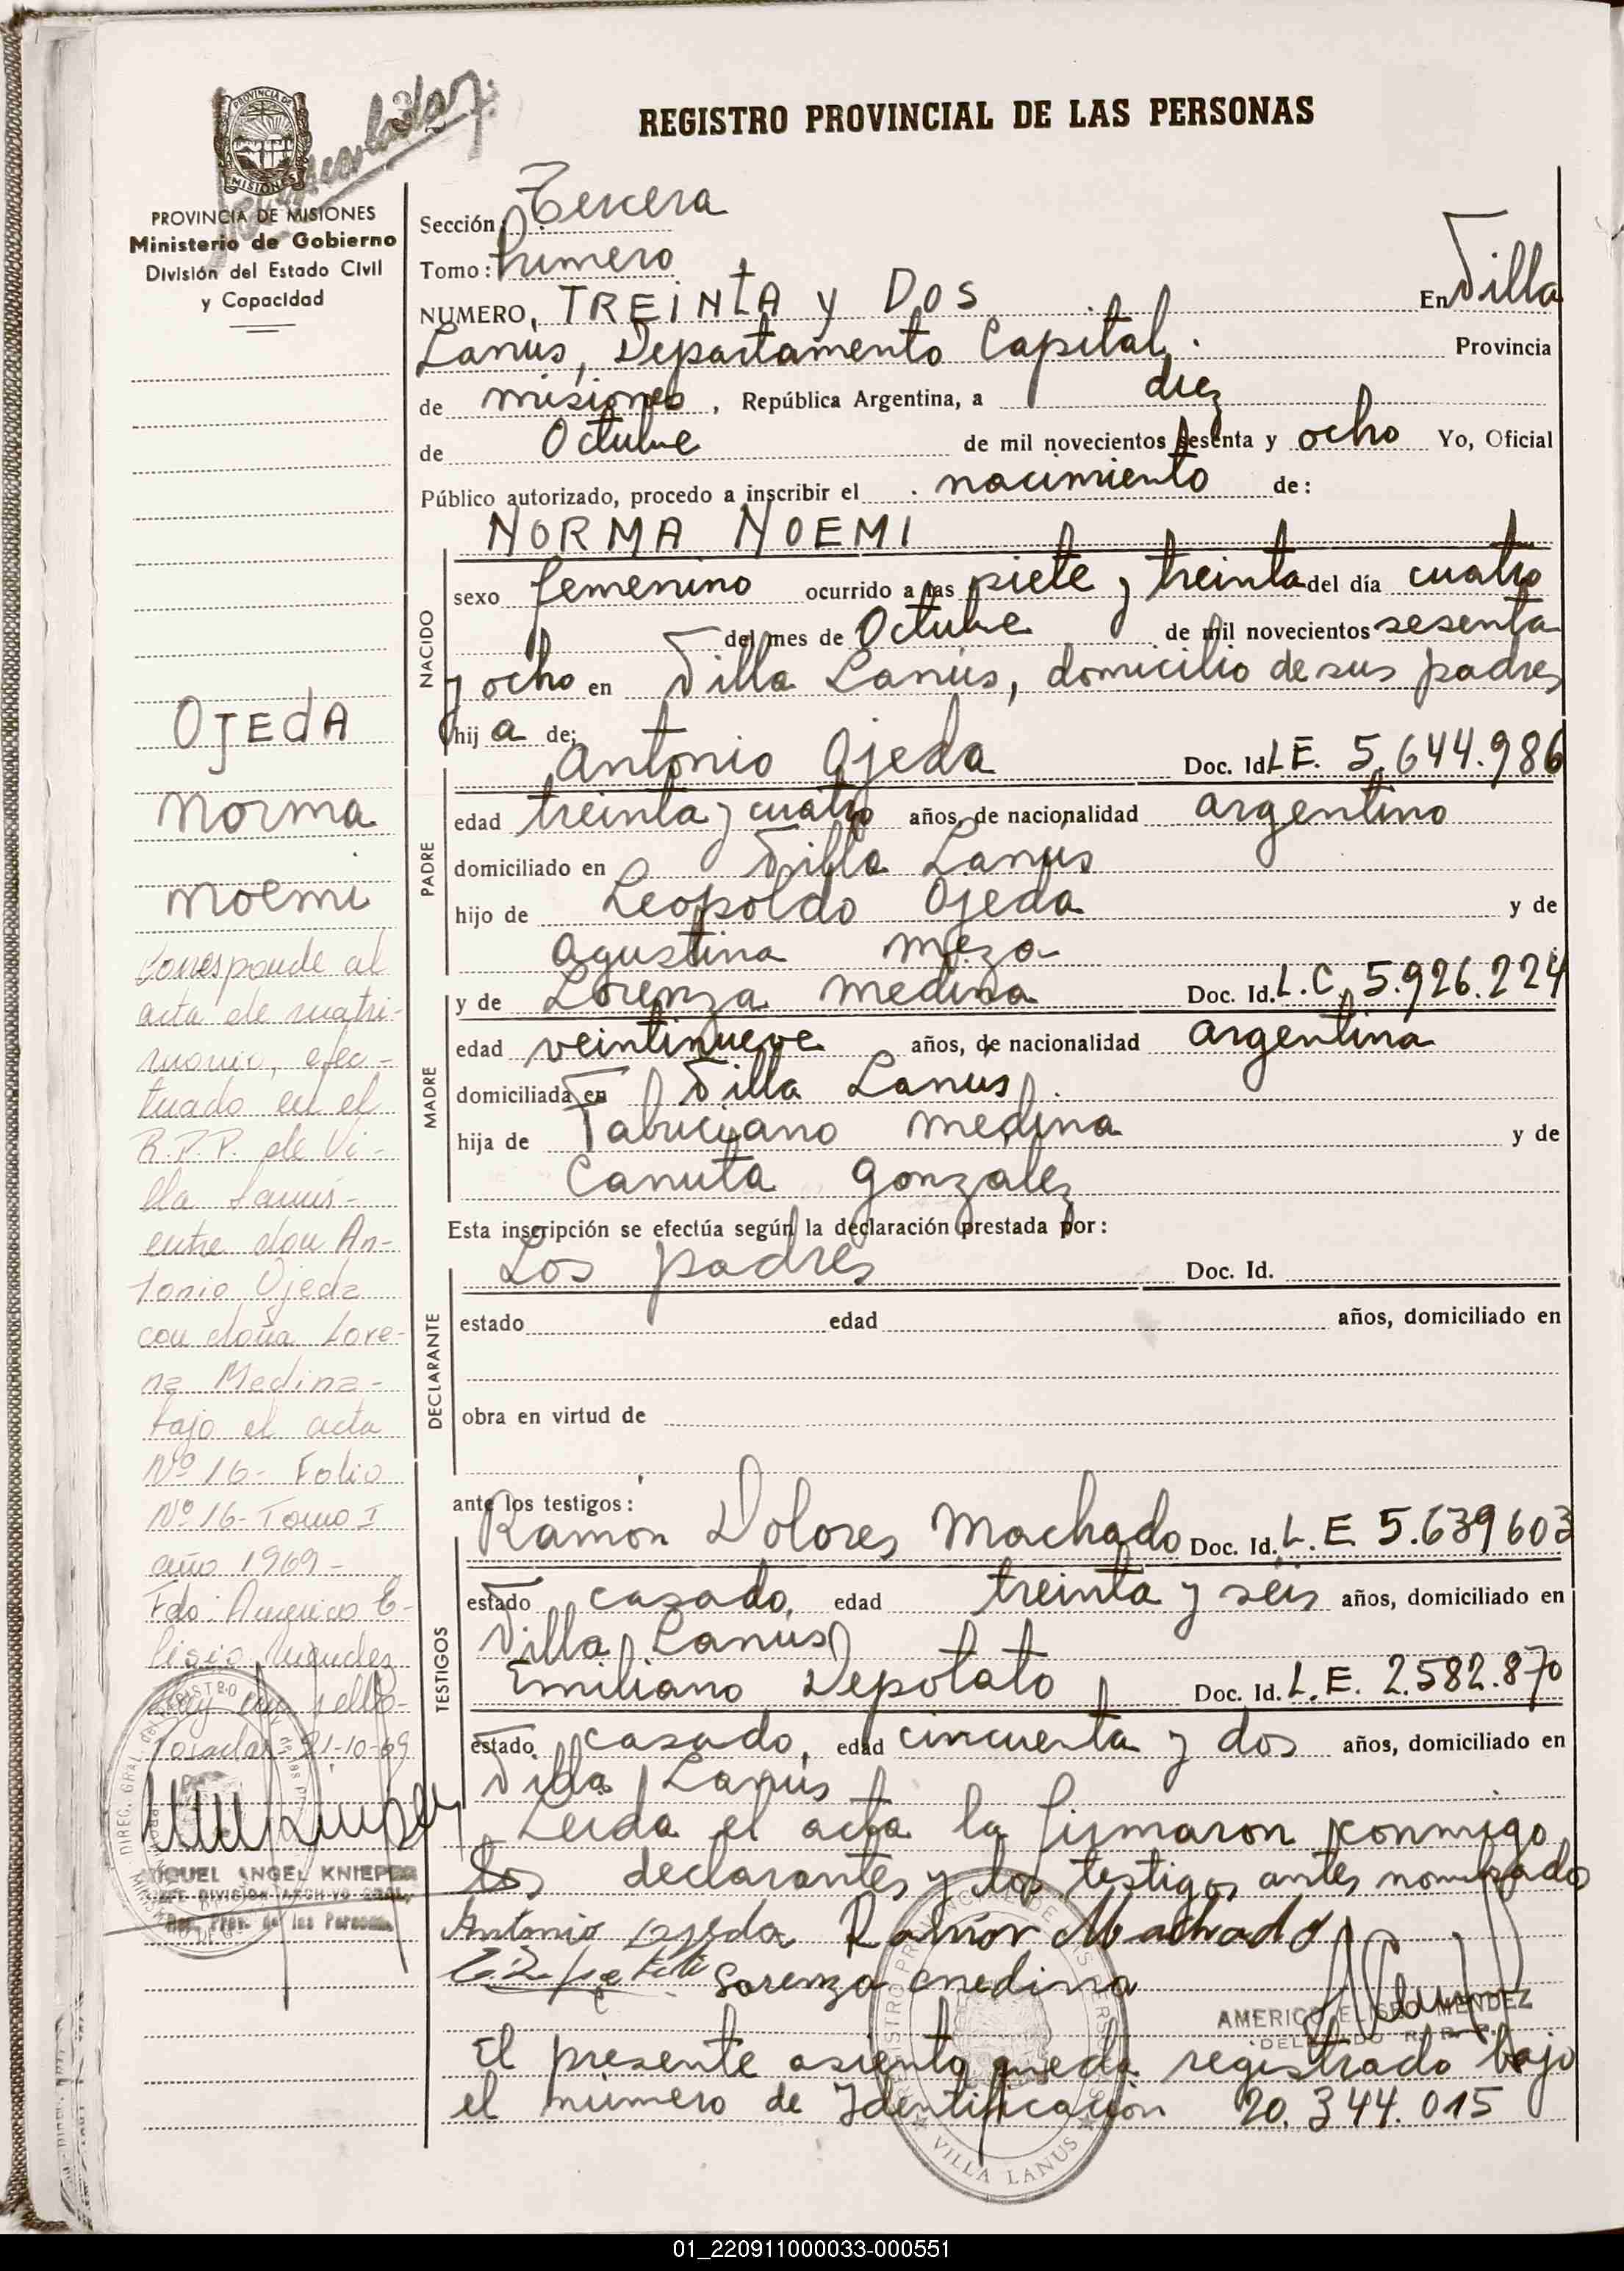 REGISTRO PROVINCIAL DE LAS PERSONAS
PROVINCIA DE MISIONES
PROVINCIA DE MISIONES
Ministerio de Gobierno
División del Estado Civil
y Capacidad
Sección: Tercera
Tomo: Primero
NUMERO, TREINTA y DOS En Villa
Lanus, Departamento Capital. Provincia
de misiones, República Argentina, a diez
de Octubre de mil novecientos sesenta y ocho Yo, Oficial
Público autorizado, procedo a inscribir el nacimiento de:
NORMA NOEMI
NACIDO
sexo femenino ocurrido a las siete y treinta del día cuatro
del mes de Octubre de mil novecientos sesenta
y ocho en Villa Lanús, domicilio de sus padres
hij a de:
Antonio Ojeda Doc. Id. L.E. 5.644.986
PADRE
edad treinta y cuatro años, de nacionalidad argentino
domiciliado en Villa Lanus
hijo de Leopoldo Ojeda y de
Agustina Meza
y de Lorenza Medina Doc. Id. L.C. 5.926.224
MADRE
edad veintinueve años, de nacionalidad argentina
domiciliada en Villa Lanus
hija de Fabriciano Medina y de
Canuta Gonzalez
Esta inscripción se efectúa según la declaración prestada por:
Los padres Doc. Id.
DECLARANTE
estado edad años, domiciliado en
obra en virtud de
ante los testigos:
Ramon Dolores Machado Doc. Id. L.E. 5.639603
TESTIGOS
estado casado, edad treinta y séis años, domiciliado en
Villa Lanús
Emiliano Depotato Doc. Id. L.E. 2.582.870
estado casado, edad cincuenta y dos años, domiciliado en
Villa Lanús
Leida el acta la firmaron conmigo
los declarantes y los testigos antes nombrado
Antonio Ojeda Ramón Machado
Lorenza Medina
AMERICO ELISEO MENDEZ
DELEGADO R. P. P.
El presente asiento queda registrado bajo
el número de Identificación 20.344.015
VILLA LANUS
OJEdA
Norma
Noemi
Corresponde al
acta de matri-
monio, efec-
tuado en el
R.P.P. de Vi-
lla Lanús-
entre don An-
tonio Ojeda
con doña Lore-
nza Medina-
bajo el acta
Nº 16- Folio
Nº 16- Tomo I
año 1969-
Fdo: Americo E-
liseo Mendez
Hay un sello-
Posadas, 21-10-69
MIGUEL ANGEL KNIEPER
JEFE DIVISION ARCHIVO GRAL.
Reg. Prov. de las Personas
01_220911000033-000551